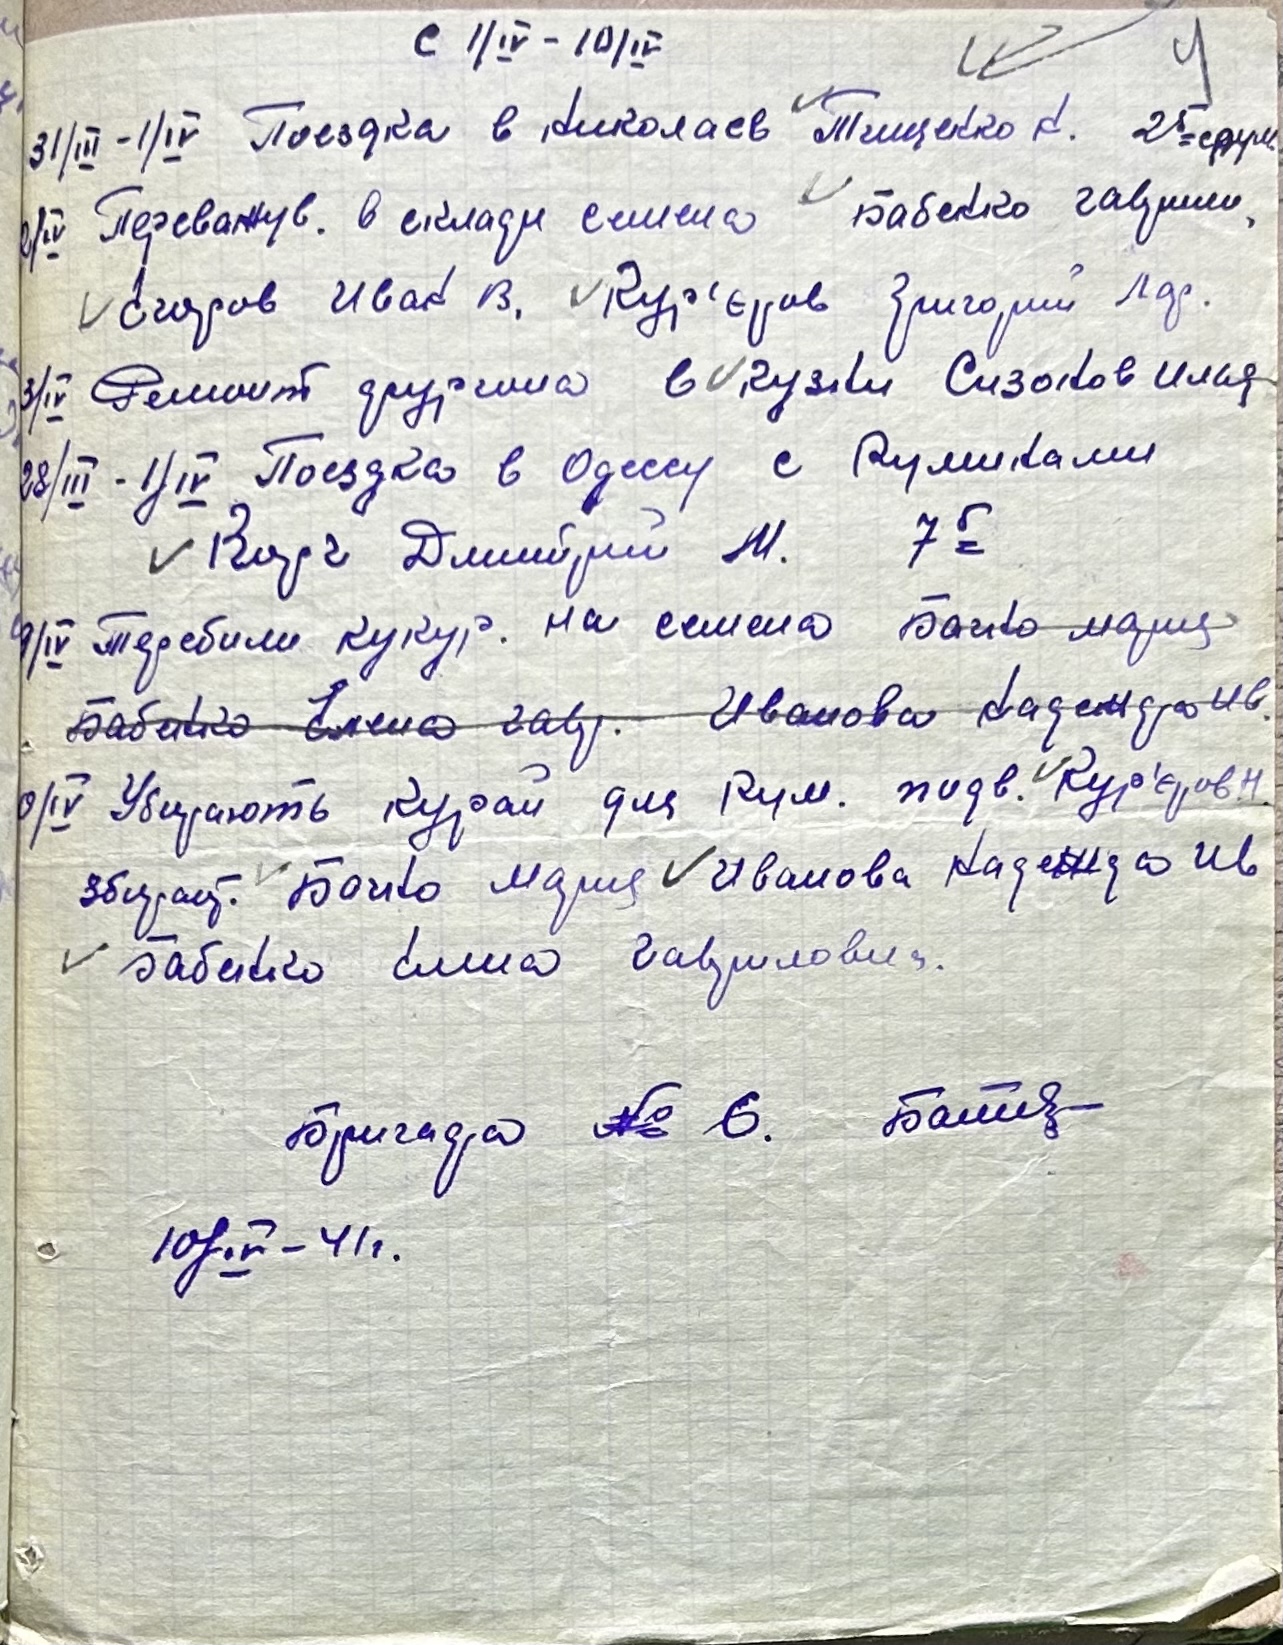 с 1/IV - 10/IV
31/III - 1/IV Поездка в Николаев Тищенко Н. 2
2/IV Переважув. в складі семена Бабенко Гаврило,
Єгоров Иван В. Кур'єров Григорий
3/IV Ремонт другина в Кузни Сизонов
28/III - 1/IV Поездка в Одессу с Румынами
Корч Дмитрий М. 7
9/IV Теребили кукур. на семена Бачко Мария
Бабенко Елена Гавр. Иванова Надежда Ив.
0/IV Убирають Курай для Рум. подв. Кур'єров Н.
збирают. Бачко Мария Иванова Надежда Ив
Бабенко Елена Гавриловна.
Бригада № 6.
10/IV - 41г.